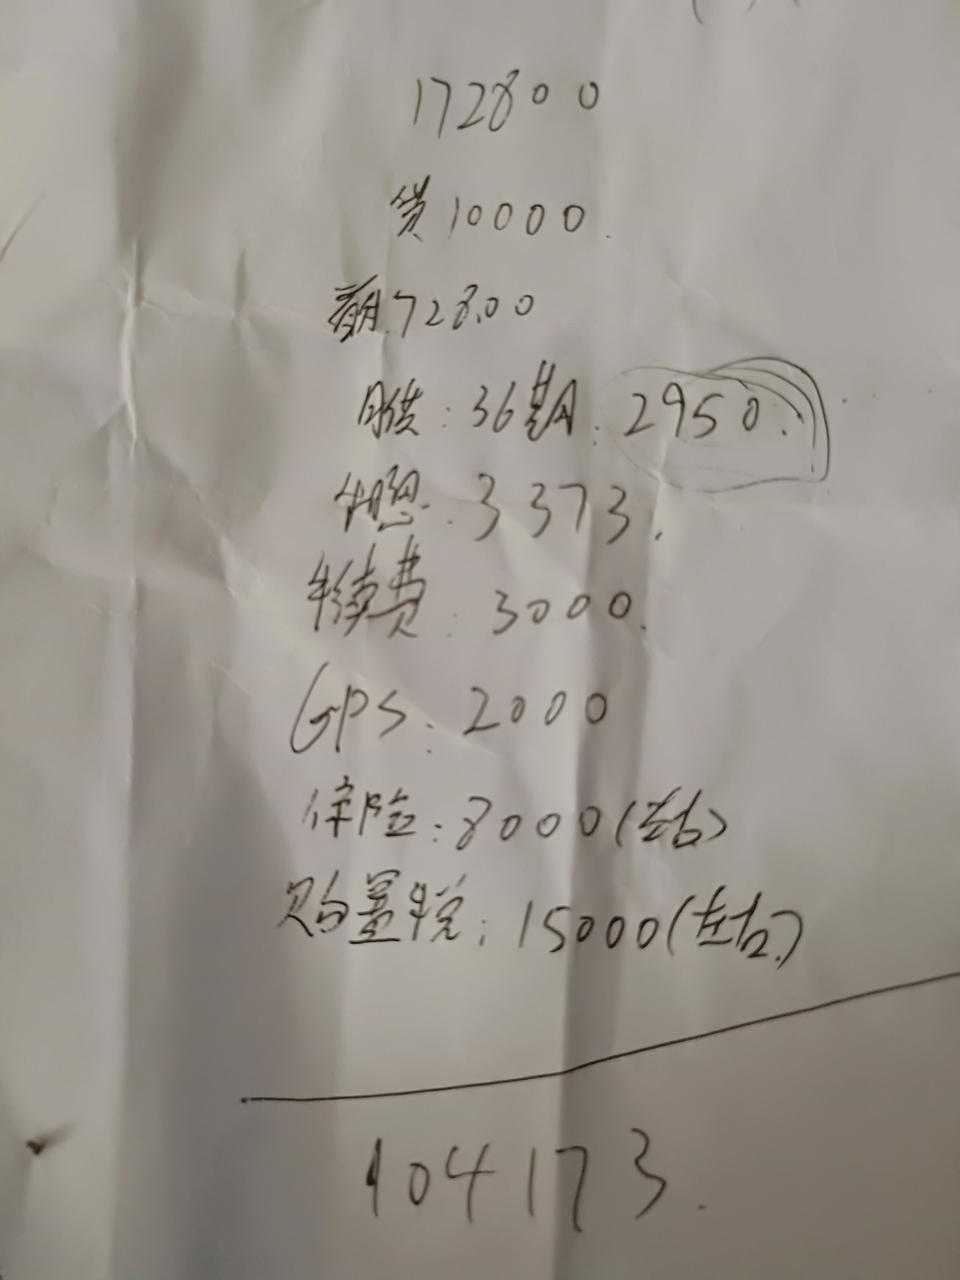 172800
贷10000.
首期72800
月供:36期.2950.
利息:3373.
手续费:3000.
GPS:2000
保险:8000(左右)
购置税:15000(左右)
104173.